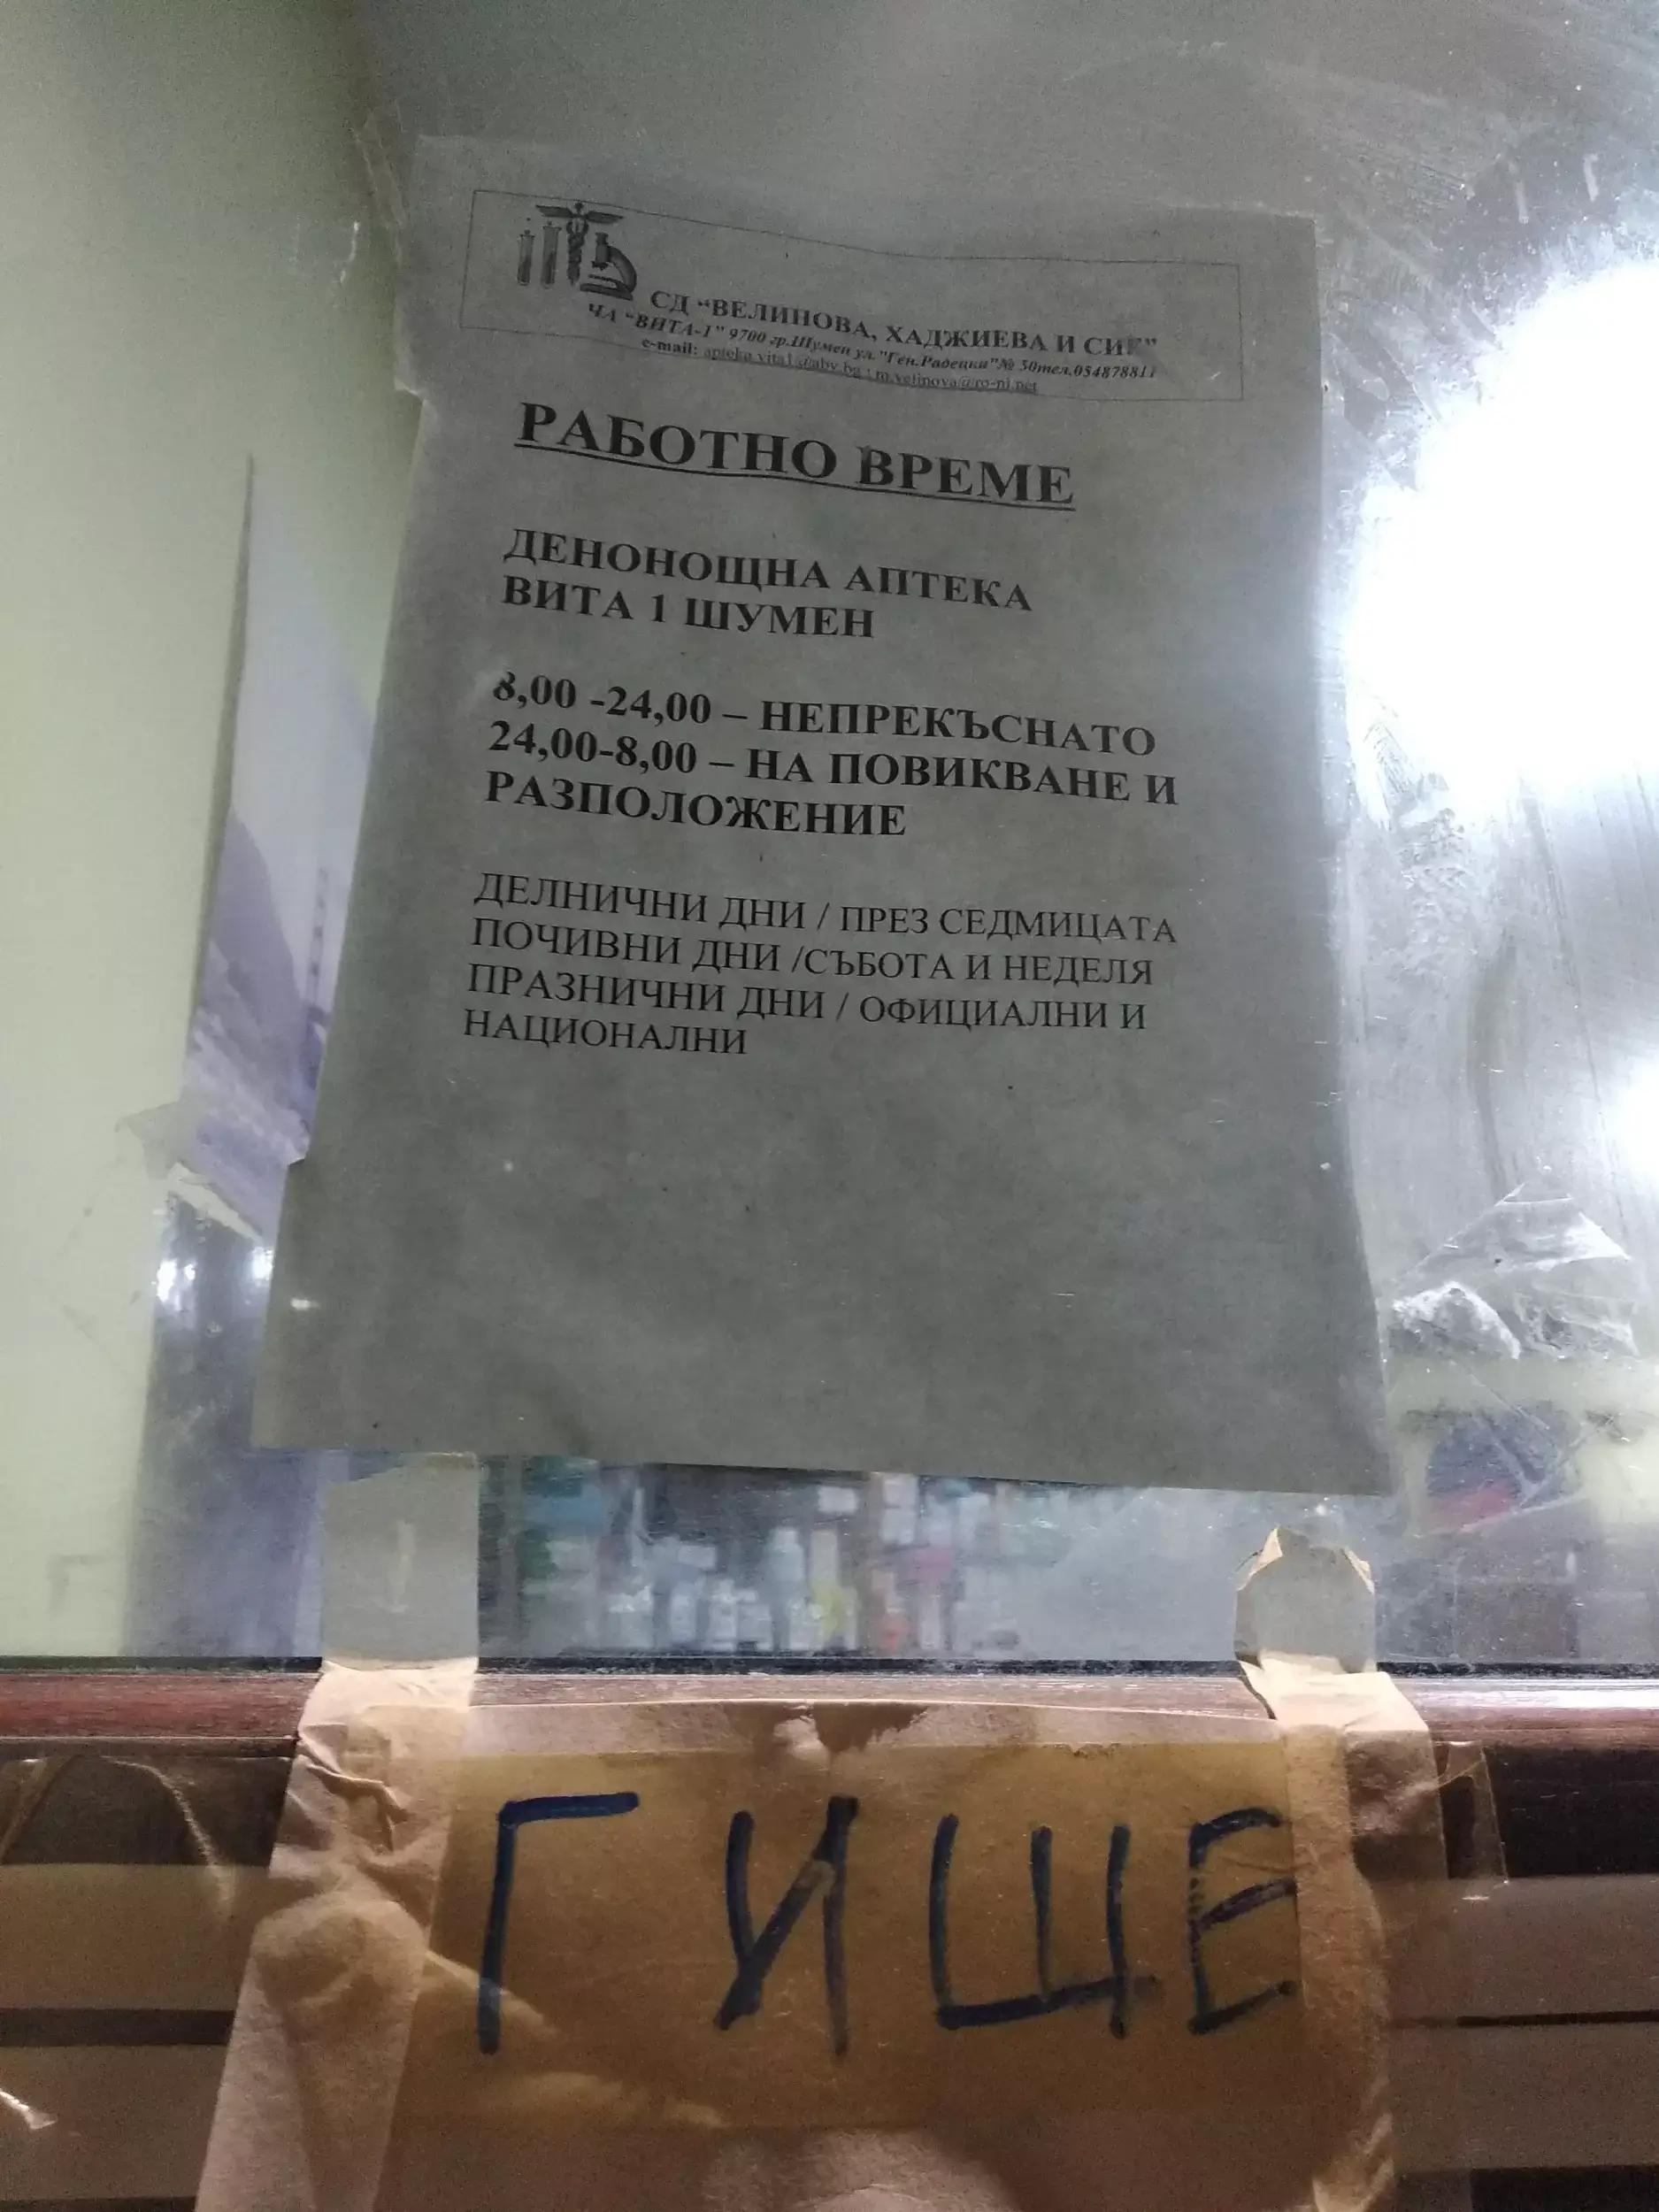 СД "ВЕЛИНОВА, ХАДЖИЕВА И СИЕ"
ЧА "ВИТА-1" 9700 гр.Шумен ул."Ген.Радецки"№ 50тел.054878811
e-mail: apteka_vita1@abv.bg ; m.velinova@ro-ni.net
РАБОТНО ВРЕМЕ
ДЕНОНОЩНА АПТЕКА
ВИТА 1 ШУМЕН
8,00 -24,00 – НЕПРЕКЪСНАТО
24,00-8,00 – НА ПОВИКВАНЕ И
РАЗПОЛОЖЕНИЕ
ДЕЛНИЧНИ ДНИ / ПРЕЗ СЕДМИЦАТА
ПОЧИВНИ ДНИ /СЪБОТА И НЕДЕЛЯ
ПРАЗНИЧНИ ДНИ / ОФИЦИАЛНИ И
НАЦИОНАЛНИ
ГИЩЕ